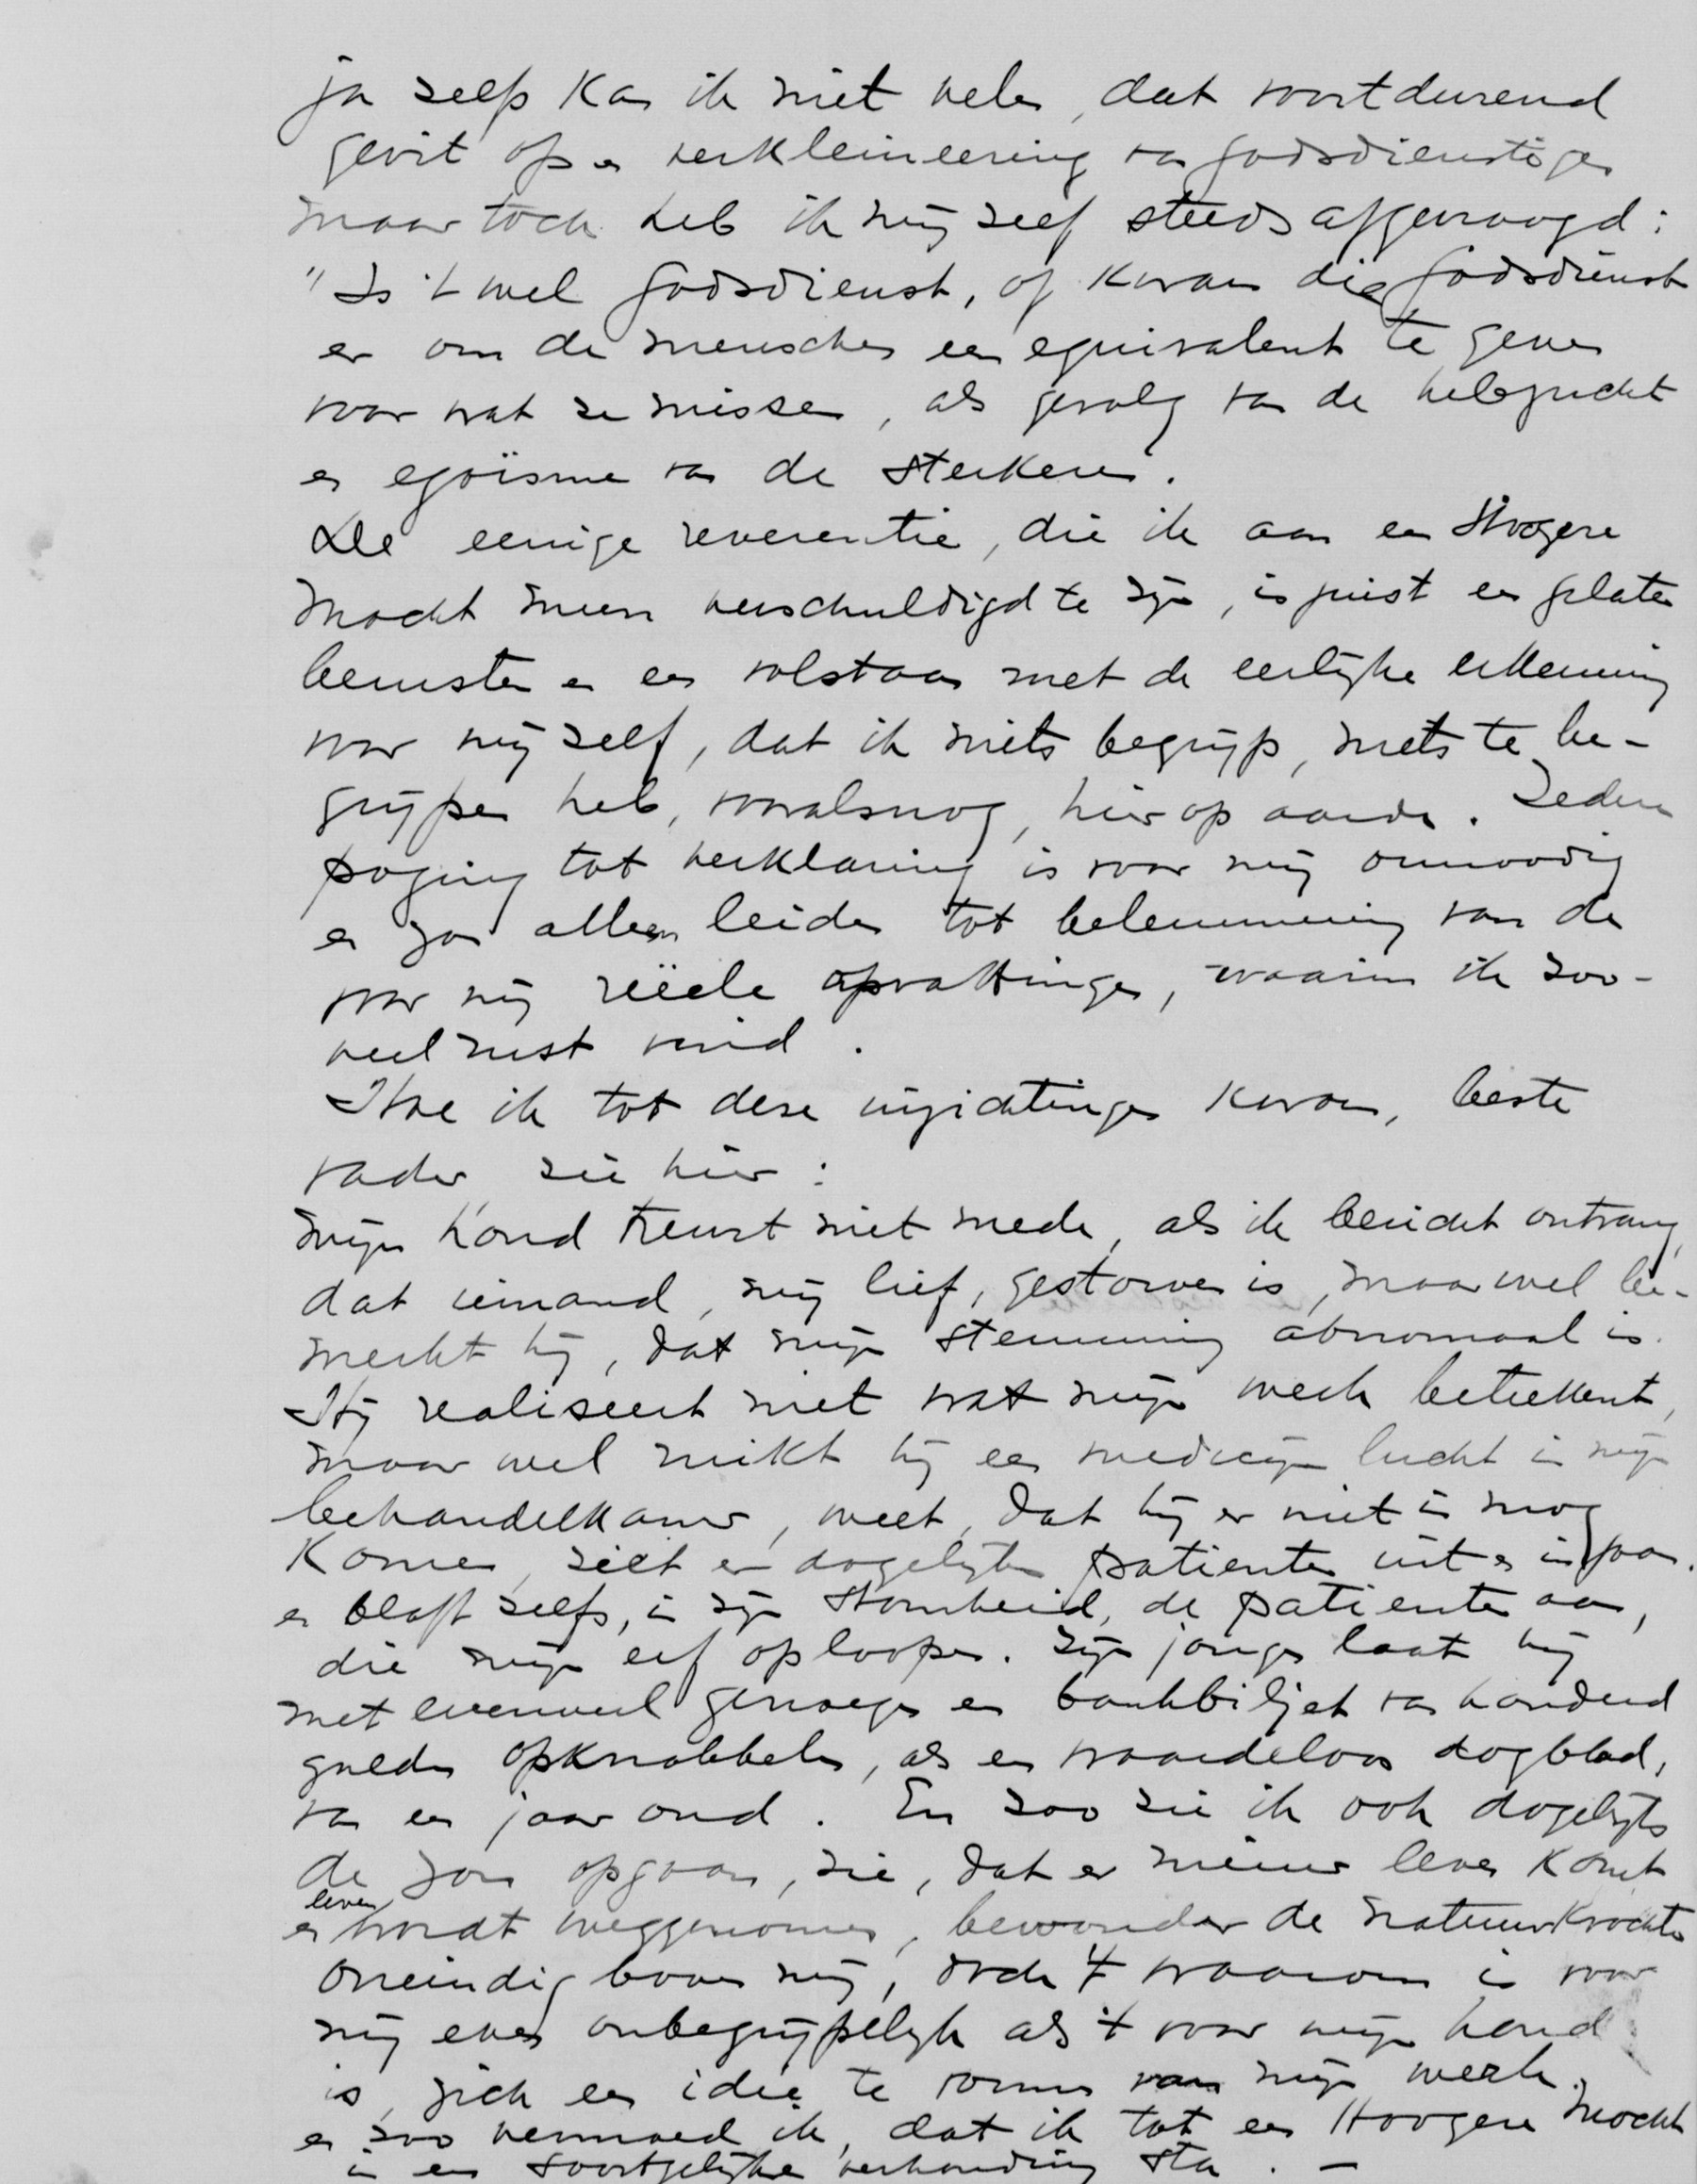 ja zelfs kan ik niet velen, dat voortdurend
gevit op en verkleineering van godsdienstigen
maar toch heb ik mijzelf steeds afgevraagd:
"Is 't wel godsdienst, of kwam die godsdienst
er om de menschen een equivalent te geven
voor wat ze missen, als gevolg van de hebzucht
en egoïsme van de sterkeren.
De eenige reverentie, die ik aan een Hoogere
Macht meen verschuldigd te zijn, is juist een gelaten
berusten en een volstaan met de eerlijke erkenning
voor mijzelf, dat ik niets begrijp, niets te be-
grijpen heb, vooralsnog, hier op aarde. Iedere
poging tot verklaring is voor mij onnoodig
en zou alleen leiden tot belemmering van de
voor mij reëele opvattingen, waarin ik zoo-
veel rust vind.
Hoe ik tot deze inzichtingen kwam, beste
vader, zie hier:
Mijn hond treurt niet mede, als ik bericht ontvang,
dat iemand, mij lief, gestorven is, maar wel be-
merkt hij, dat mijn stemming abnormaal is.
Hij realiseert niet wat mijn werk beteekent,
maar wel ruikt hij een medicijnlucht in mijn
behandelkamer, weet, dat hij er niet in mag
komen, ziet er dagelijks patienten uit en in gaan.
en blaft zelfs, in zijn stomheid, de patienten aan,
die mijn erf oploopen. Zijn jongen laat hij
met evenveel genoegen een bankbiljet van honderd
gulden opknabbelen, als een waardeloos dagblad,
van een jaar oud. En zoo zie ik ook dagelijks
de zon opgaan, zie, dat er nieuw leven komt
en leven wordt weggenomen, bewonder de natuurkrachten
oneindig boven mij, doch 't waarom is voor
mij even onbegrijpelijk als 't voor mijn hond
is, zich een idee te vormen van mijn werk.
en zoo vermoed ik, dat ik tot een Hoogere Macht
in een soortgelijke verhouding sta. –